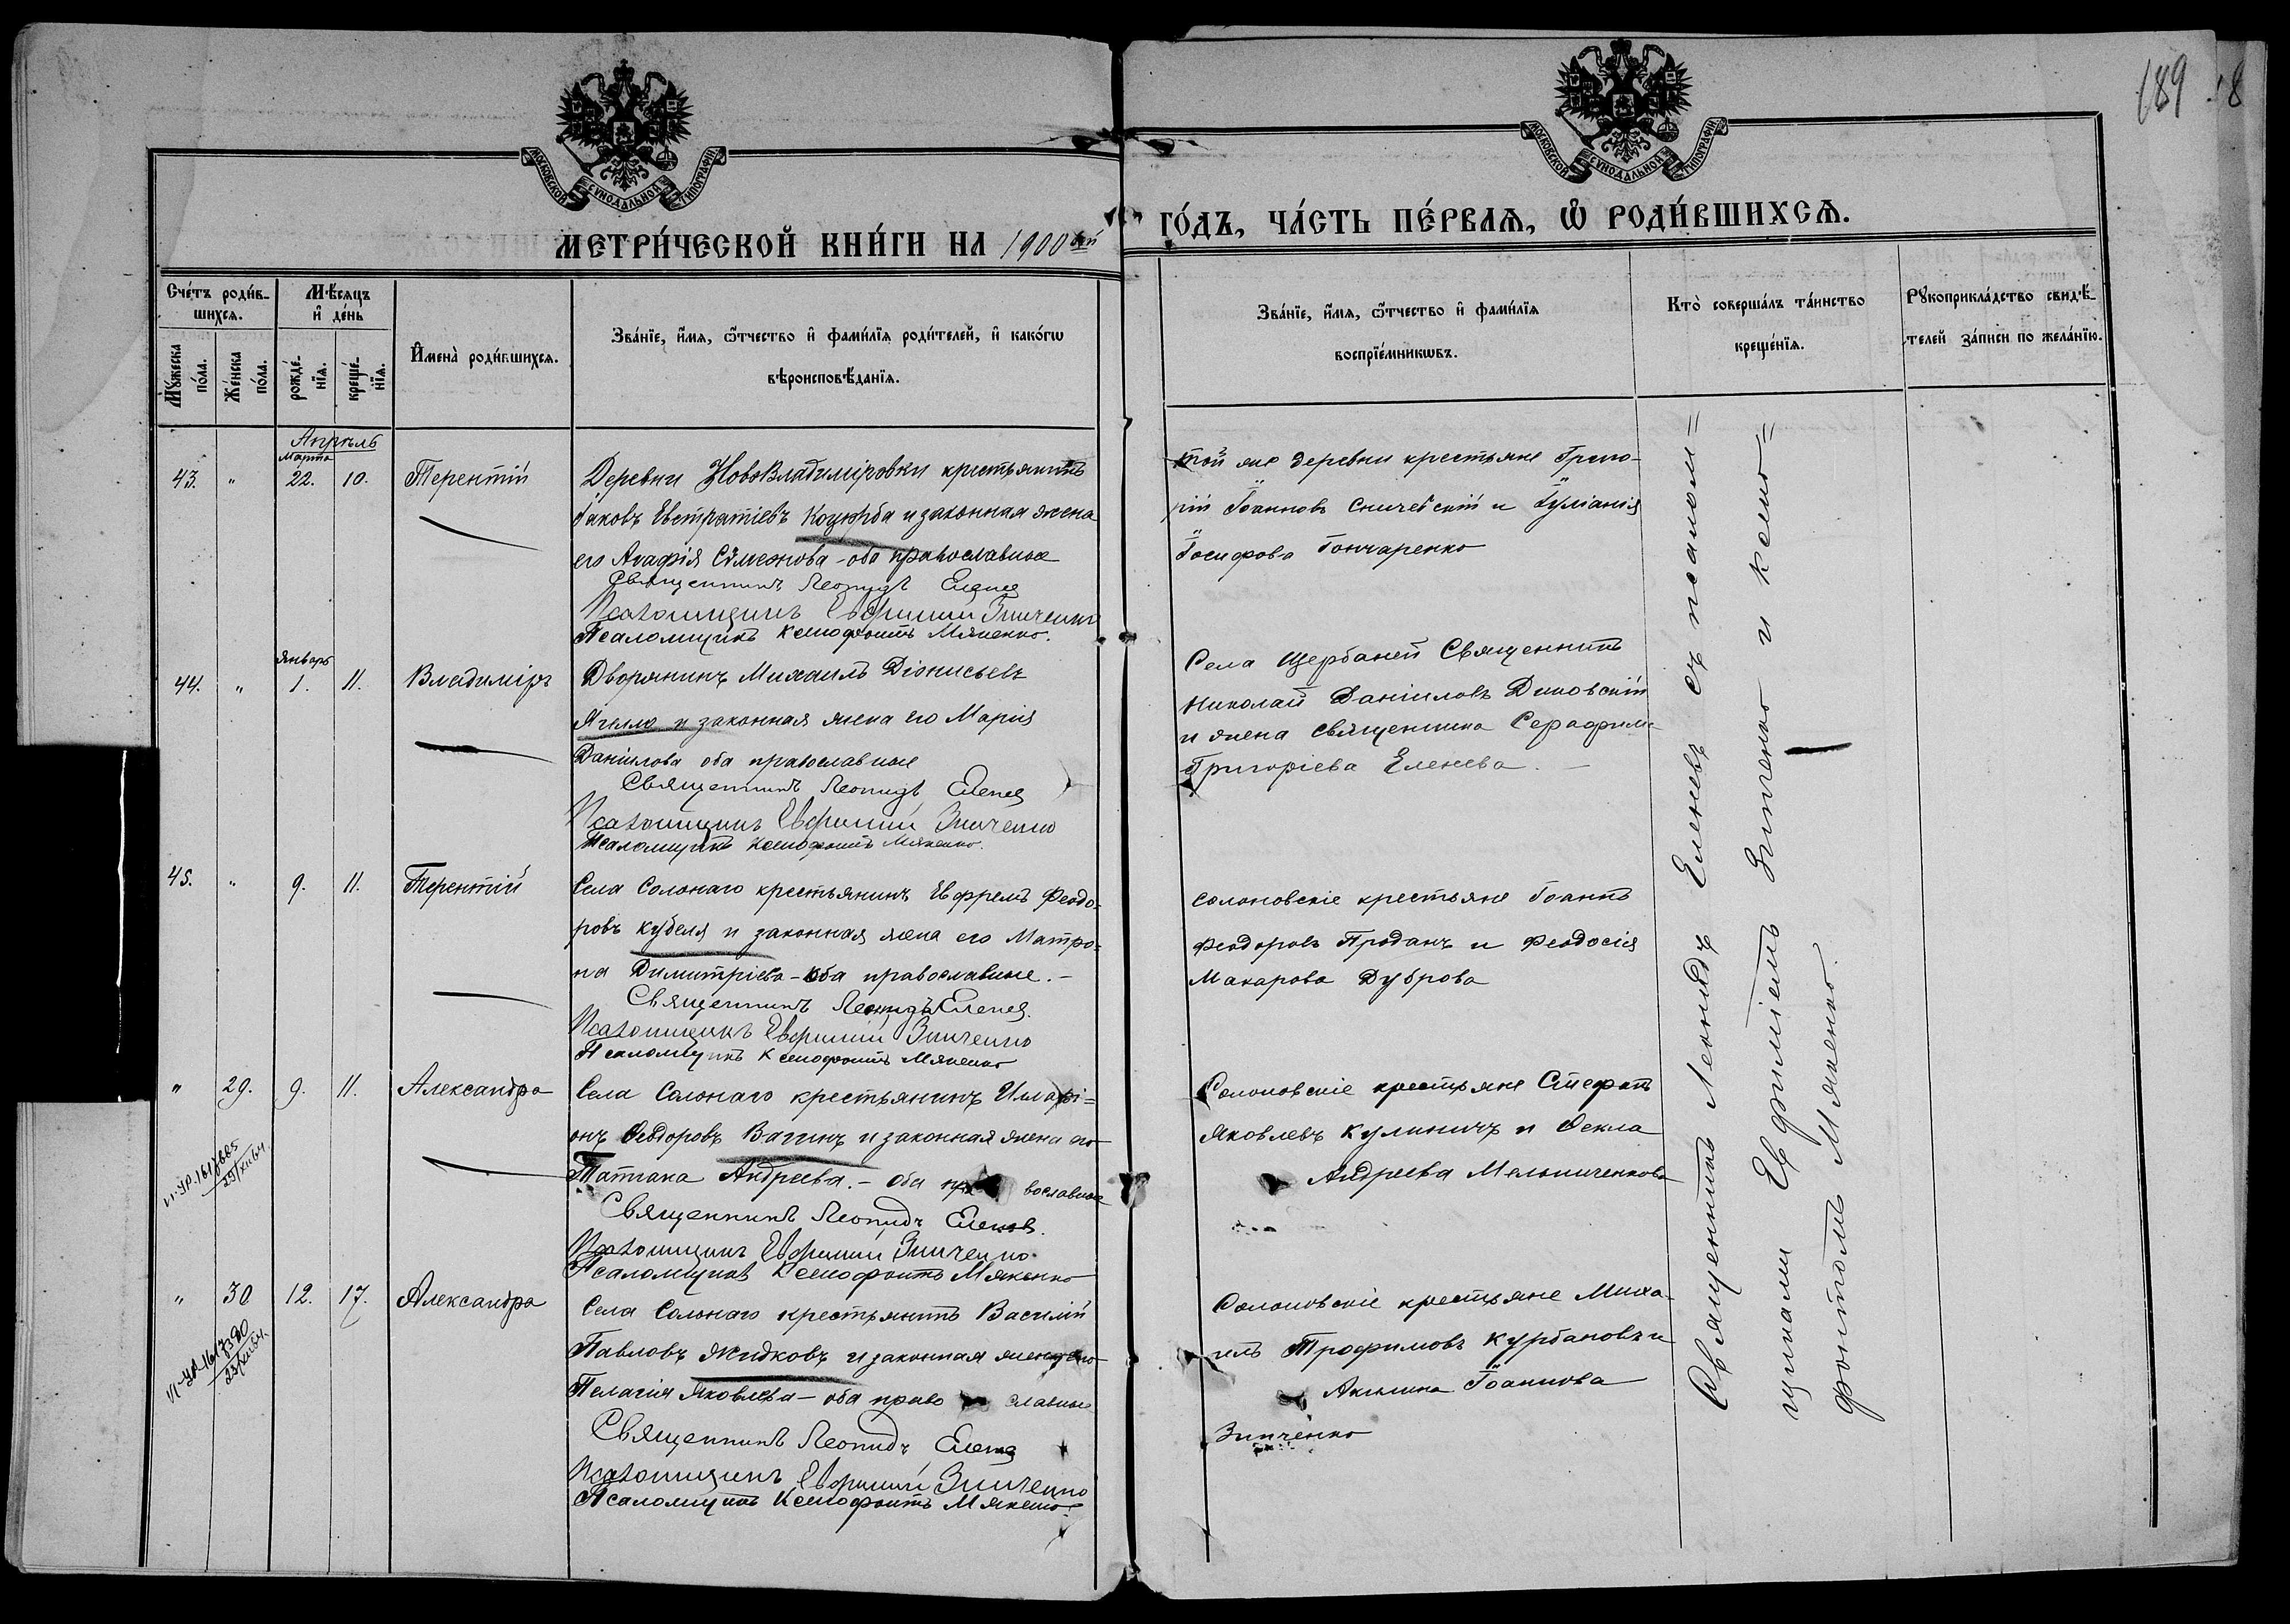 189
МОСКОВСКОЙ СѴНОДАЛЬНОЙ ТИПОГРАФІИ
МОСКОВСКОЙ СѴНОДАЛЬНОЙ ТИПОГРАФІИ
МЕТРИ́ЧЕСКОЙ КНИ́ГИ НА 1900ый
ГО́ДЪ, ЧА́СТЬ ПЕ́РВАѦ, Ѡ҆ РОДИ́ВШИХСѦ.
Сче́тъ роди́в-
шихсѧ.
Мѣ́сѧцъ
и҆ де́нь
Мꙋ́жеска
по́ла.
Же́нска
по́ла.
рожде́-
нїѧ.
креще́-
нїѧ.
И҆мена̀ роди́вшихсѧ.
Зва́нїе, и҆́мѧ, ѻ҆́тчество и҆ фами́лїѧ роди́телей, и҆ како́гѡ
вѣроисповѣ́данїѧ.
Зва́нїе, и҆́мѧ, ѻ҆́тчество и҆ фами́лїѧ
воспрїе́мникѡвъ.
Кто̀ соверша́лъ та́инство
креще́нїѧ.
Рꙋкоприкла́дство свидѣ́-
телей за́писи по жела́нїю.
Апрѣль
Марта
43. " 22. 10. Терентій
Деревни НовоВладиміровки крестьянинъ
Іаковъ Евстратіевъ Коцюрба и законная жена
его Агафія Симеонова - оба православные
Священникъ Леонидъ Еленев
Псаломщикъ Евфимий Зинченко
Псаломщикъ Ксенофонтъ Мякенко.
той же деревни крестьяне Григо-
рій Іоанновъ Сничевскій и Іуліанія
Іосифова Гончаренко
Январь
44. " 1. 11. Владиміръ
Дворянинъ Михаилъ Діонисьевъ
Ягилло и законная жена его Марія
Даніилова оба православные
Священникъ Леонидъ Еленев
Псаломщикъ Евфимий Зинченко
Псаломщикъ Ксенофонтъ Мякенко.
Села Щербаней Священникъ
Николай Даніиловъ Диковскій
и жена священника Серафима
Григоріева Еленева. —
45. " 9. 11. Терентій
Села Солонаго крестьянинъ Ефремъ Феодо-
ровъ Кубеля и законная жена его Матро-
на Димитріева - оба православные. -
Священникъ Леонидъ Еленев.
Псаломщикъ Евфимий Зинченко
Псаломщикъ Ксенофонтъ Мякенко
солоновскіе крестьяне Іоаннъ
Феодоровъ Проданъ и Феодосія
Макарова Дуброва
" 29. 9. 11. Александра
Села Солонаго крестьянинъ Иларі=
онъ Феодоровъ Вагинъ и законная жена его
Татіана Андреева. - оба православные
Священникъ Леонидъ Еленев.
Псаломщикъ Евфимий Зинченко.
Псаломщикъ Ксенофонтъ Мякенко
Солоновскіе крестьяне Стефанъ
Яковлевъ Кулиничъ и Фекла
Андреева Мельниченкова
" 30 12. 17. Александра
Села Солонаго крестьянинъ Василій
Павловъ Жидковъ и законная жена его
Пелагія Яковлева - оба православные
Священникъ Леонидъ Еленев
Псаломщикъ Евфимий Зинченко
Псаломщикъ Ксенофонтъ Мякенко.
Солоновскіе крестьяне Миха-
илъ Трофимовъ Курбановъ и
Акилина Іоаннова
Зинченко
Священникъ Леонидъ Еленевъ съ псалом=
щиками Ефиміемъ Зинченко и Ксено=
фонтомъ Мякенко.